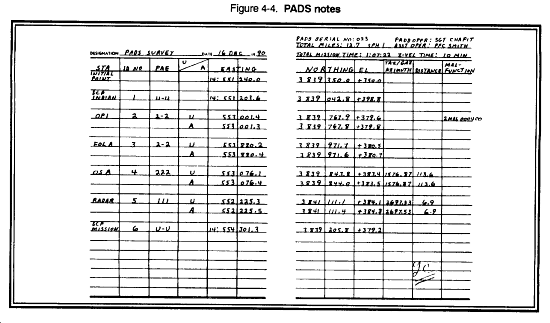 Figure 4-4. PADS notes
PADS SERIAL NO: 023 PADS OPER: SGT CHAFIT
TOTAL MILES: 12.7 SPH 1 ASST OPER: PFC SMITH
DESIGNATION PADS SURVEY DATE 16 DEC 19 90 TOTAL MISSION TIME: 1:07:22 Z-VEL TIME: 10 MIN
STA ID NO PAE U/A EASTING NORTHING EL TAZ/GAZ AZIMUTH DISTANCE MAL-FUNCTION
INITIAL POINT 14: 551 240.0 3 839 350.0 +350.0
SCP INDIAN 1 U-U 14: 551 203.6 3 839 042.8 +398.8
OP1 2 2-2 U 553 001.4 3 839 767.9 +379.6
A 553 001.3 3 839 767.8 +379.8
FOLA 3 2-2 U 553 880.2 3 839 971.7 +380.5
A 553 880.4 3 839 971.6 +380.7
OSA 4 222 U 553 076.1 3 839 843.8 +383.4 1576.87 113.6
A 553 076.4 3 839 844.0 +383.5 1576.87 113.6
RADAR 5 111 U 552 225.3 3 841 111.1 +384.1 2687.53 6.9
A 552 225.5 3 841 111.4 +384.8 2687.53 6.9
SCP MISSION 6 U-U 14: 554 301.3 3 839 205.8 +379.2